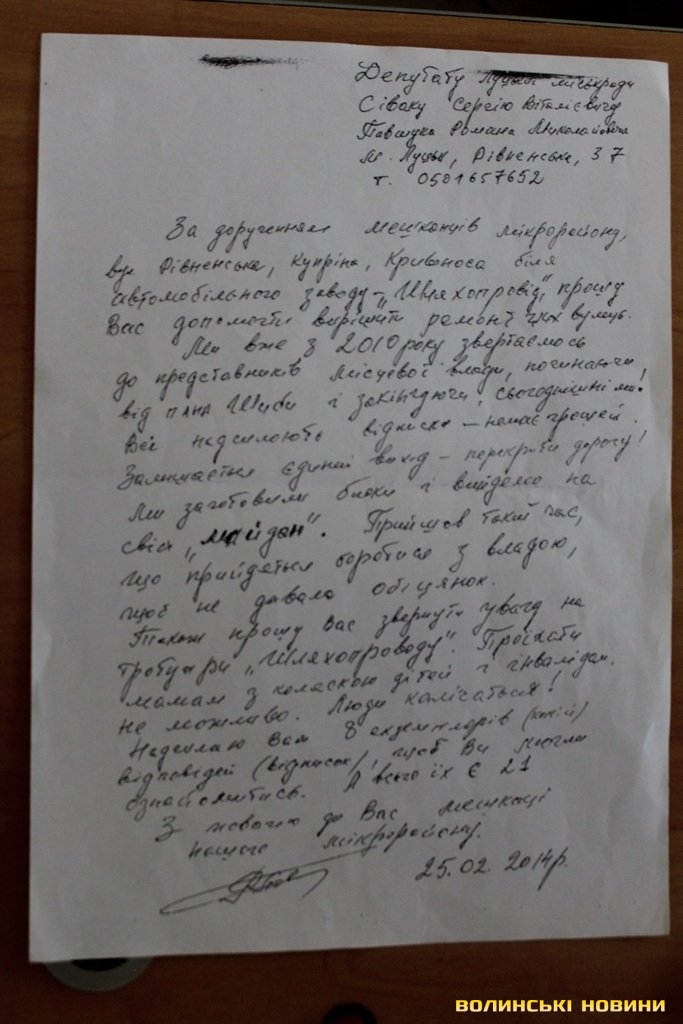 Депутату Луцької міськради
Сіваку Сергію Віталієвичу
Павшука Романа Миколайовича
м. Луцьк, Рівненська, 37
т. 0501657652
За дорученням мешканців мікрорайону,
вул Рівненська, Купріна, Кривоноса біля
автомобільного заводу - "Шляхопровід", прошу
Вас допомогти вирішити ремонт цих вулиць.
Ми вже з 2010 року звертаємось
до представників місцевої влади, починаючи
від пана Шиби і закінчуючи сьогоднішніми!
Всі надсилають відписки - немає грошей.
Залишається єдиний вихід - перекрити дорогу!
Ми заготовили блоки і вийдемо на
свій "майдан". Прийшов такий час,
що прийдеться боротися з владою,
щоб не давала обіцянок.
Також прошу Вас звернути увагу на
тротуари "Шляхопроводу". Проїхати
мамам з коляскою дітей і інвалідам
не можливо. Люди калічаться!
Надсилаю Вам 8 екземплярів (копій)
відповідей (відписок), щоб Ви могли
ознайомитись. А всього їх є 21
З повагою до Вас мешканці
нашого мікрорайону.
25.02.2014р.
ВОЛИНСЬКІ НОВИНИ